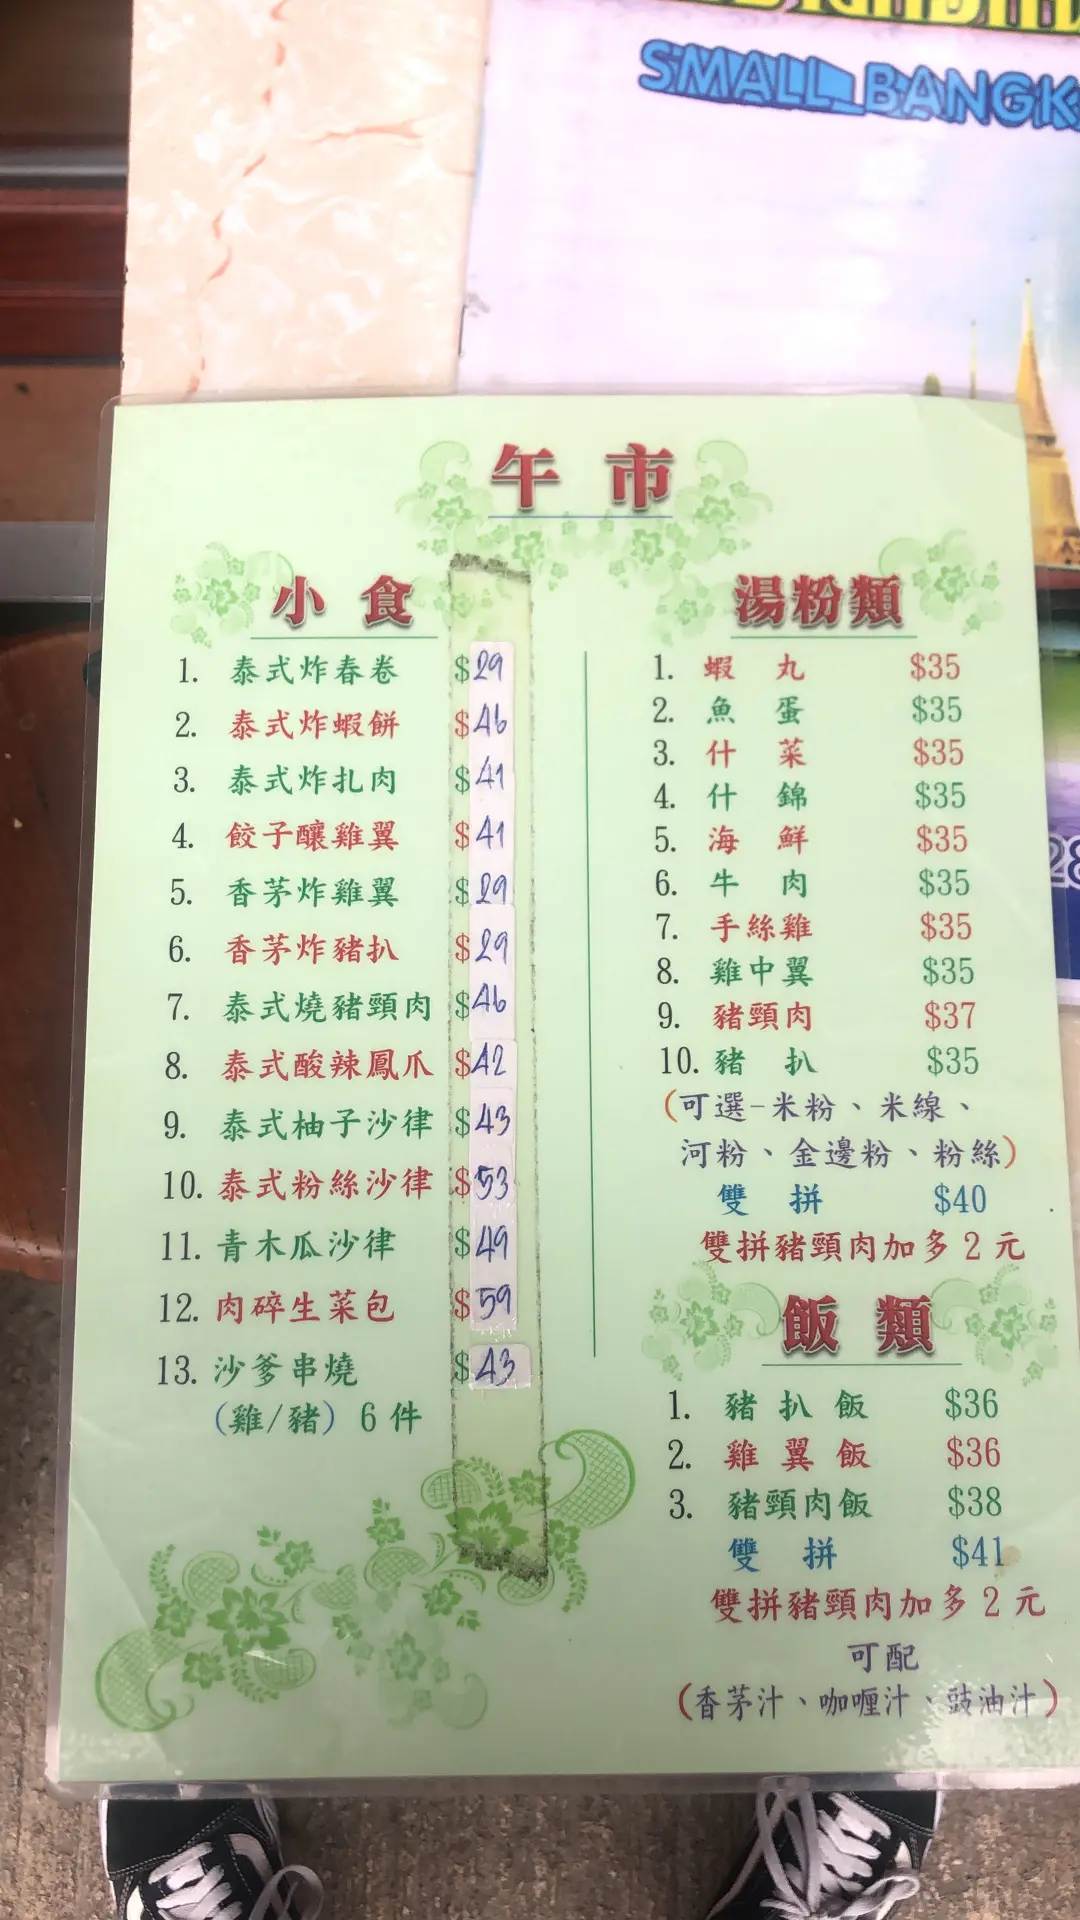 SMALL BANGK
午市
小食
1. 泰式炸春卷 $29
2. 泰式炸蝦餅 $46
3. 泰式炸扎肉 $41
4. 餃子釀雞翼 $41
5. 香茅炸雞翼 $29
6. 香茅炸豬扒 $29
7. 泰式燒豬頸肉 $46
8. 泰式酸辣鳳爪 $42
9. 泰式柚子沙律 $43
10. 泰式粉絲沙律 $53
11. 青木瓜沙律 $49
12. 肉碎生菜包 $59
13. 沙爹串燒 $43
(雞/豬) 6件
湯粉類
1. 蝦丸 $35
2. 魚蛋 $35
3. 什菜 $35
4. 什錦 $35
5. 海鮮 $35
6. 牛肉 $35
7. 手絲雞 $35
8. 雞中翼 $35
9. 豬頸肉 $37
10. 豬扒 $35
(可選-米粉、米線、
河粉、金邊粉、粉絲)
雙拼 $40
雙拼豬頸肉加多2元
飯類
1. 豬扒飯 $36
2. 雞翼飯 $36
3. 豬頸肉飯 $38
雙拼 $41
雙拼豬頸肉加多2元
可配
(香茅汁、咖喱汁、豉油汁)
28